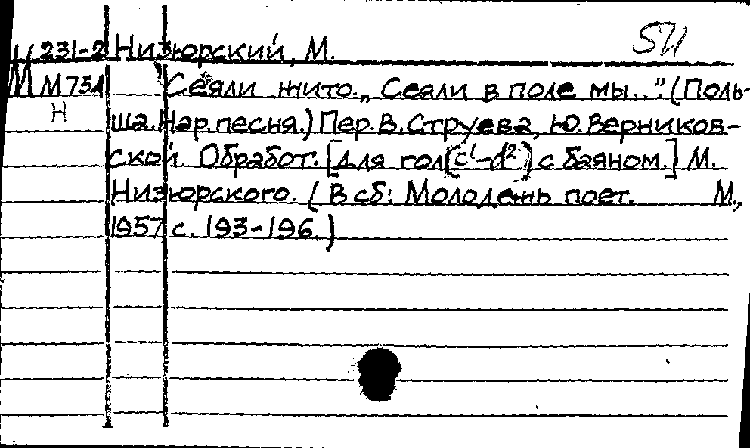 М 231-2 Низюрский, М.
М 734 Сеяли жито. „Сеяли в поле мы.." (Поль-
Н
ша. Нар. песня.) Пер. В. Струева, Ю. Верников-
ской. Обработ. [для гол(c¹-d²) с баяном.] М.
Низюрского. (В сб: Молодежь поет. М.,
1957 с. 193-196.)